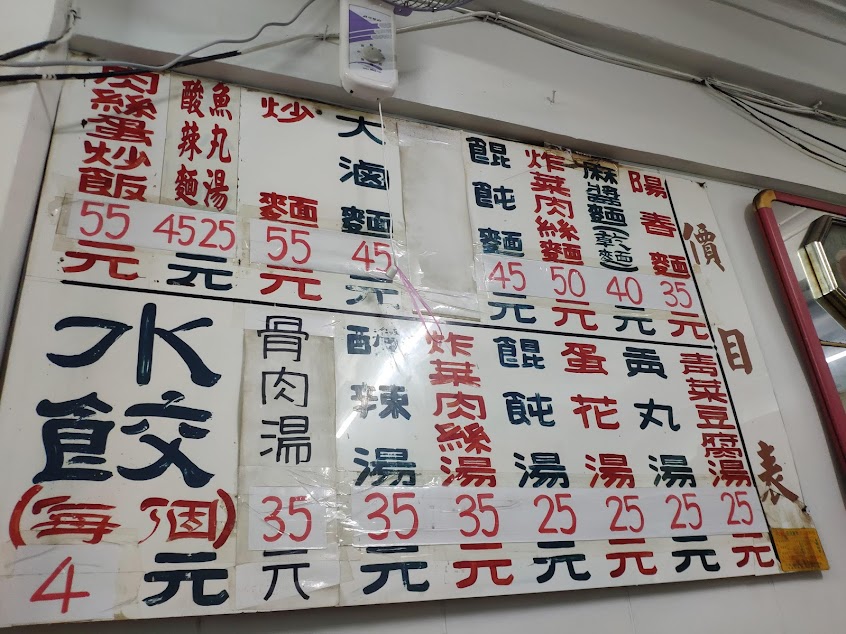 價目表
陽春麵 35元
麻醬麵(乾麵) 40元
炸菜肉絲麵 50元
餛飩麵 45元
大滷麵 45元
炒麵 55元
魚丸湯 25元
酸辣麵 45元
肉絲蛋炒飯 55元
青菜豆腐湯 25元
貢丸湯 25元
蛋花湯 25元
餛飩湯 25元
炸菜肉絲湯 35元
酸辣湯 35元
骨肉湯 35元
水餃(每個) 4元